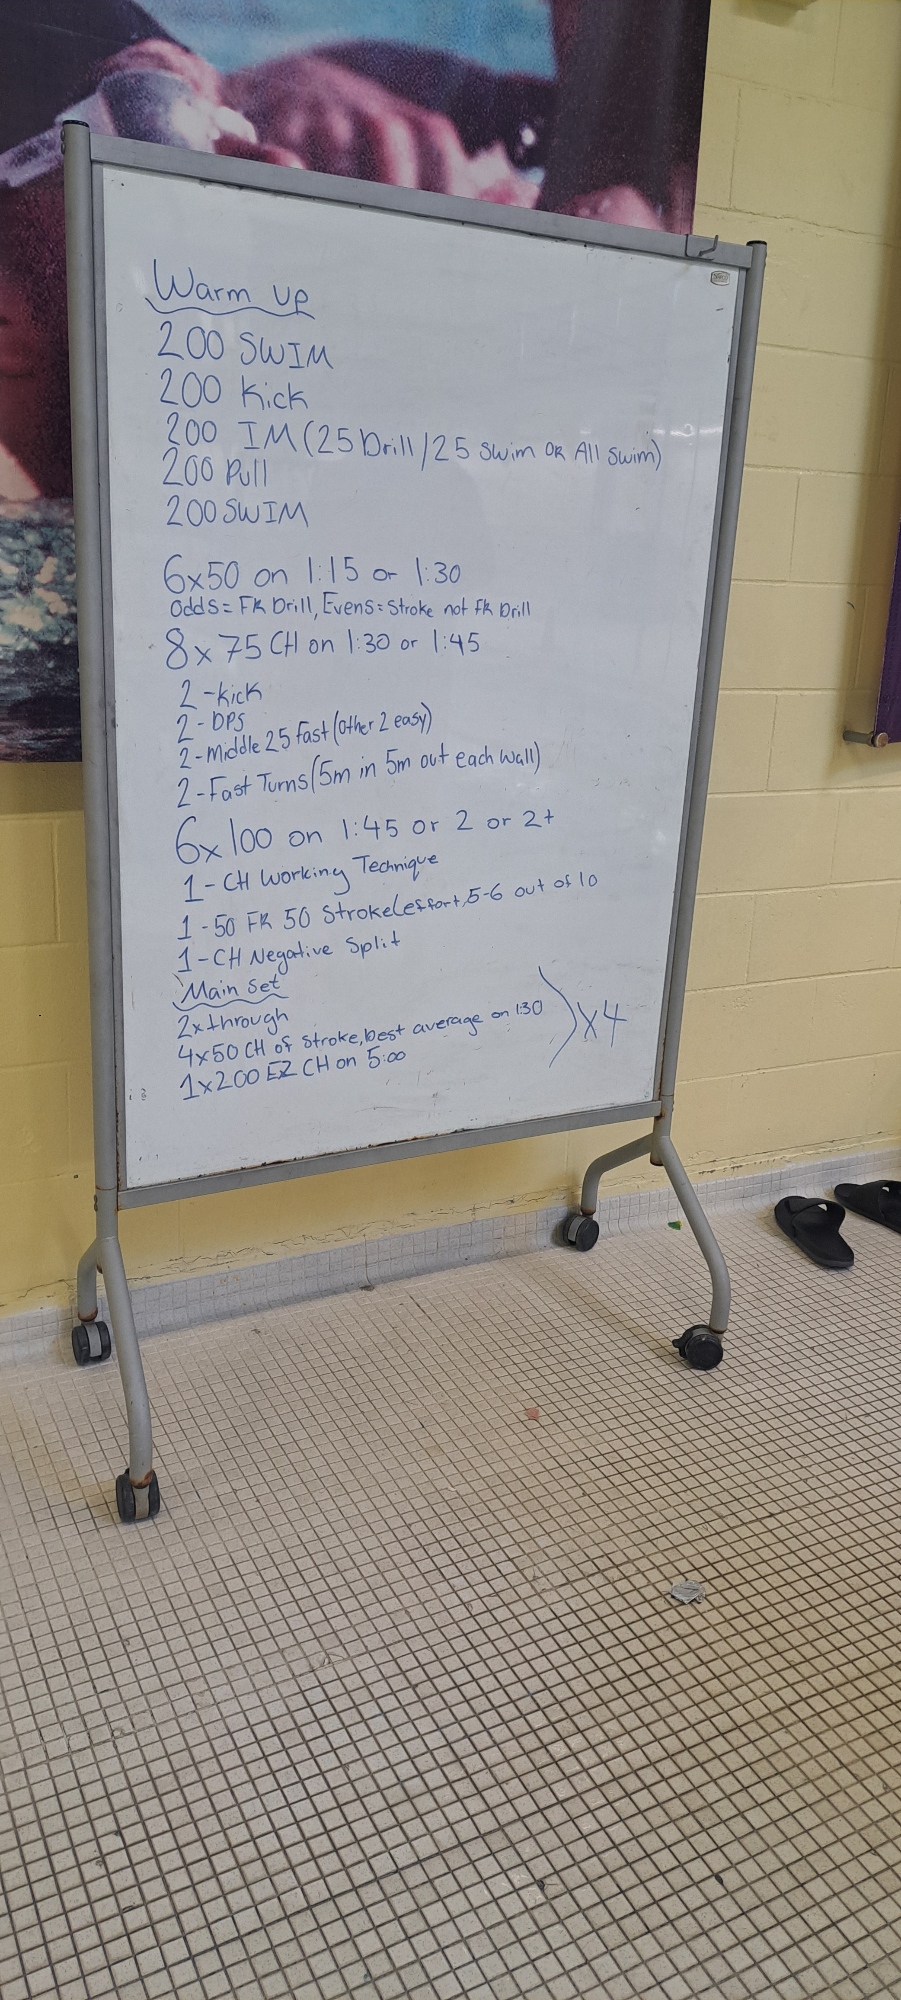 Warm up
200 SWIM
200 Kick
200 IM (25 Drill/25 Swim OR All Swim)
200 Pull
200 SWIM
6x50 on 1:15 or 1:30
Odds= FR Drill, Evens= Stroke not FR Drill
8x75 CH on 1:30 or 1:45
2-kick
2-DPS
2-Middle 25 Fast (Other 2 easy)
2-Fast Turns (5m in 5m out each wall)
6x100 on 1:45 or 2 or 2+
1-CH Working Technique
1-50 FR 50 Stroke (effort, 5-6 out of 10
1-CH Negative Split
Main Set
2x through
4x50 CH of Stroke, best average on 1:30
1x200 EZ CH on 5:00
x4